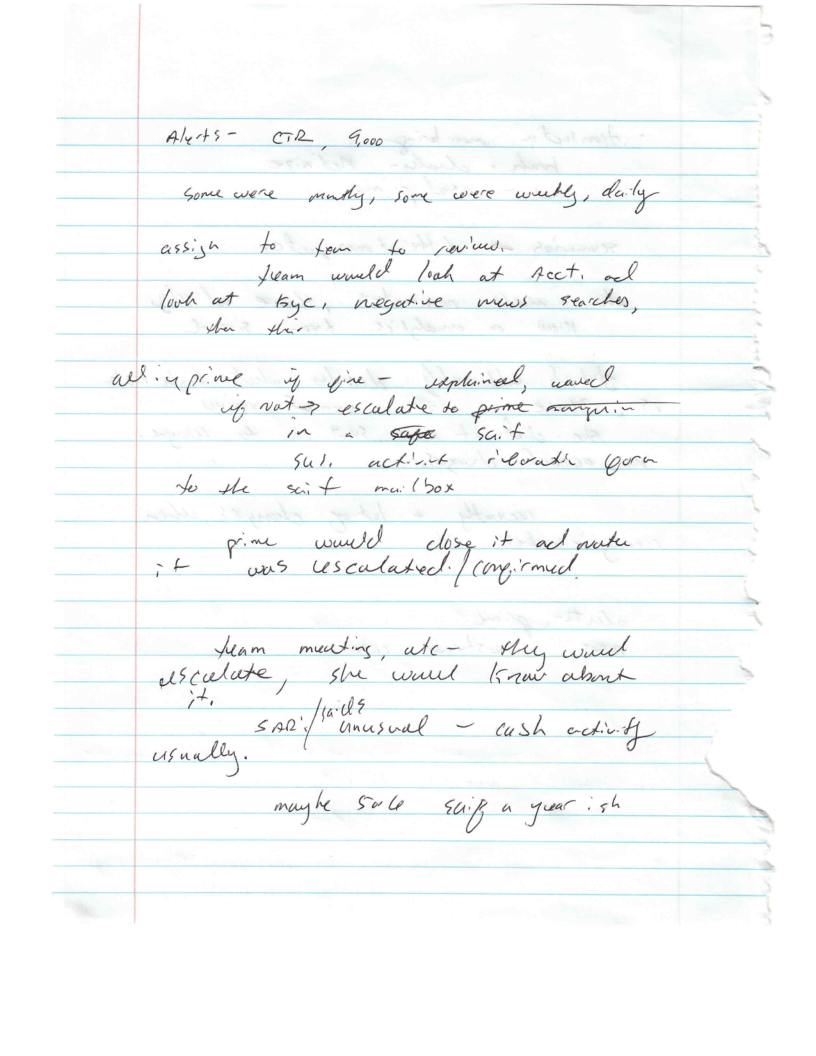 Alerts - CTR, 9,000
some were monthly, some were weekly, daily
assign to team to review.
team would look at Acct. ad
look at KYC, negative news searches,
then
all in prime if fine - explained, waved
if not → escalate to prime
in a
activit form
to the mailbox
prime would close it ad note
it was escalated/confirmed.
team meeting, etc - they would
escalate, she would know about
it.
SAR:/ unusual - cash activity
usually.
maybe a year ish